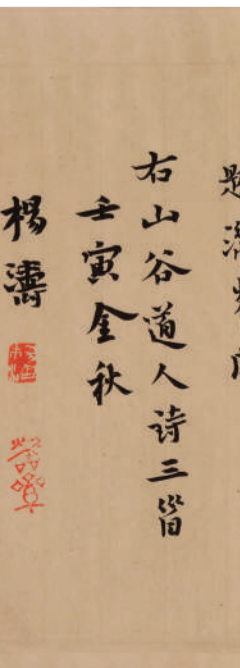 右山谷道人诗三首
壬寅金秋
楊濤